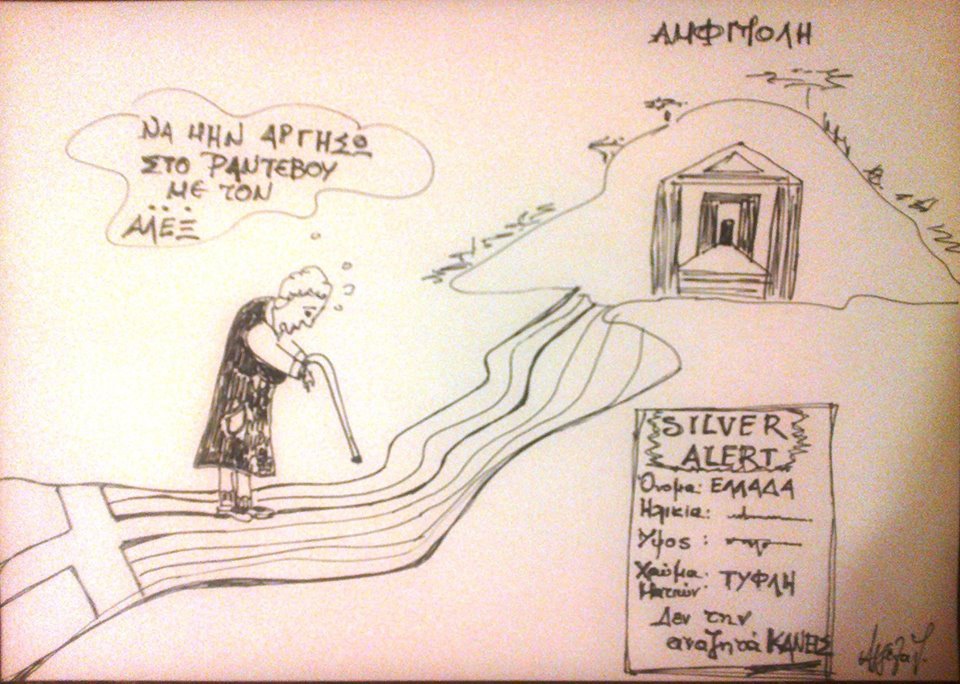 ΑΜΦΙΠΟΛΗ
ΝΑ ΜΗΝ ΑΡΓΗΣΩ
ΣΤΟ ΡΑΝΤΕΒΟΥ
ΜΕ ΤΟΝ
ΑΛΕΞ
SILVER
ALERT
Όνομα: ΕΛΛΑΔΑ
Ηλικία:
Υψος:
Χρώμα
Ματιών: ΤΥΦΛΗ
Δεν την
αναζητά ΚΑΝΕΙΣ